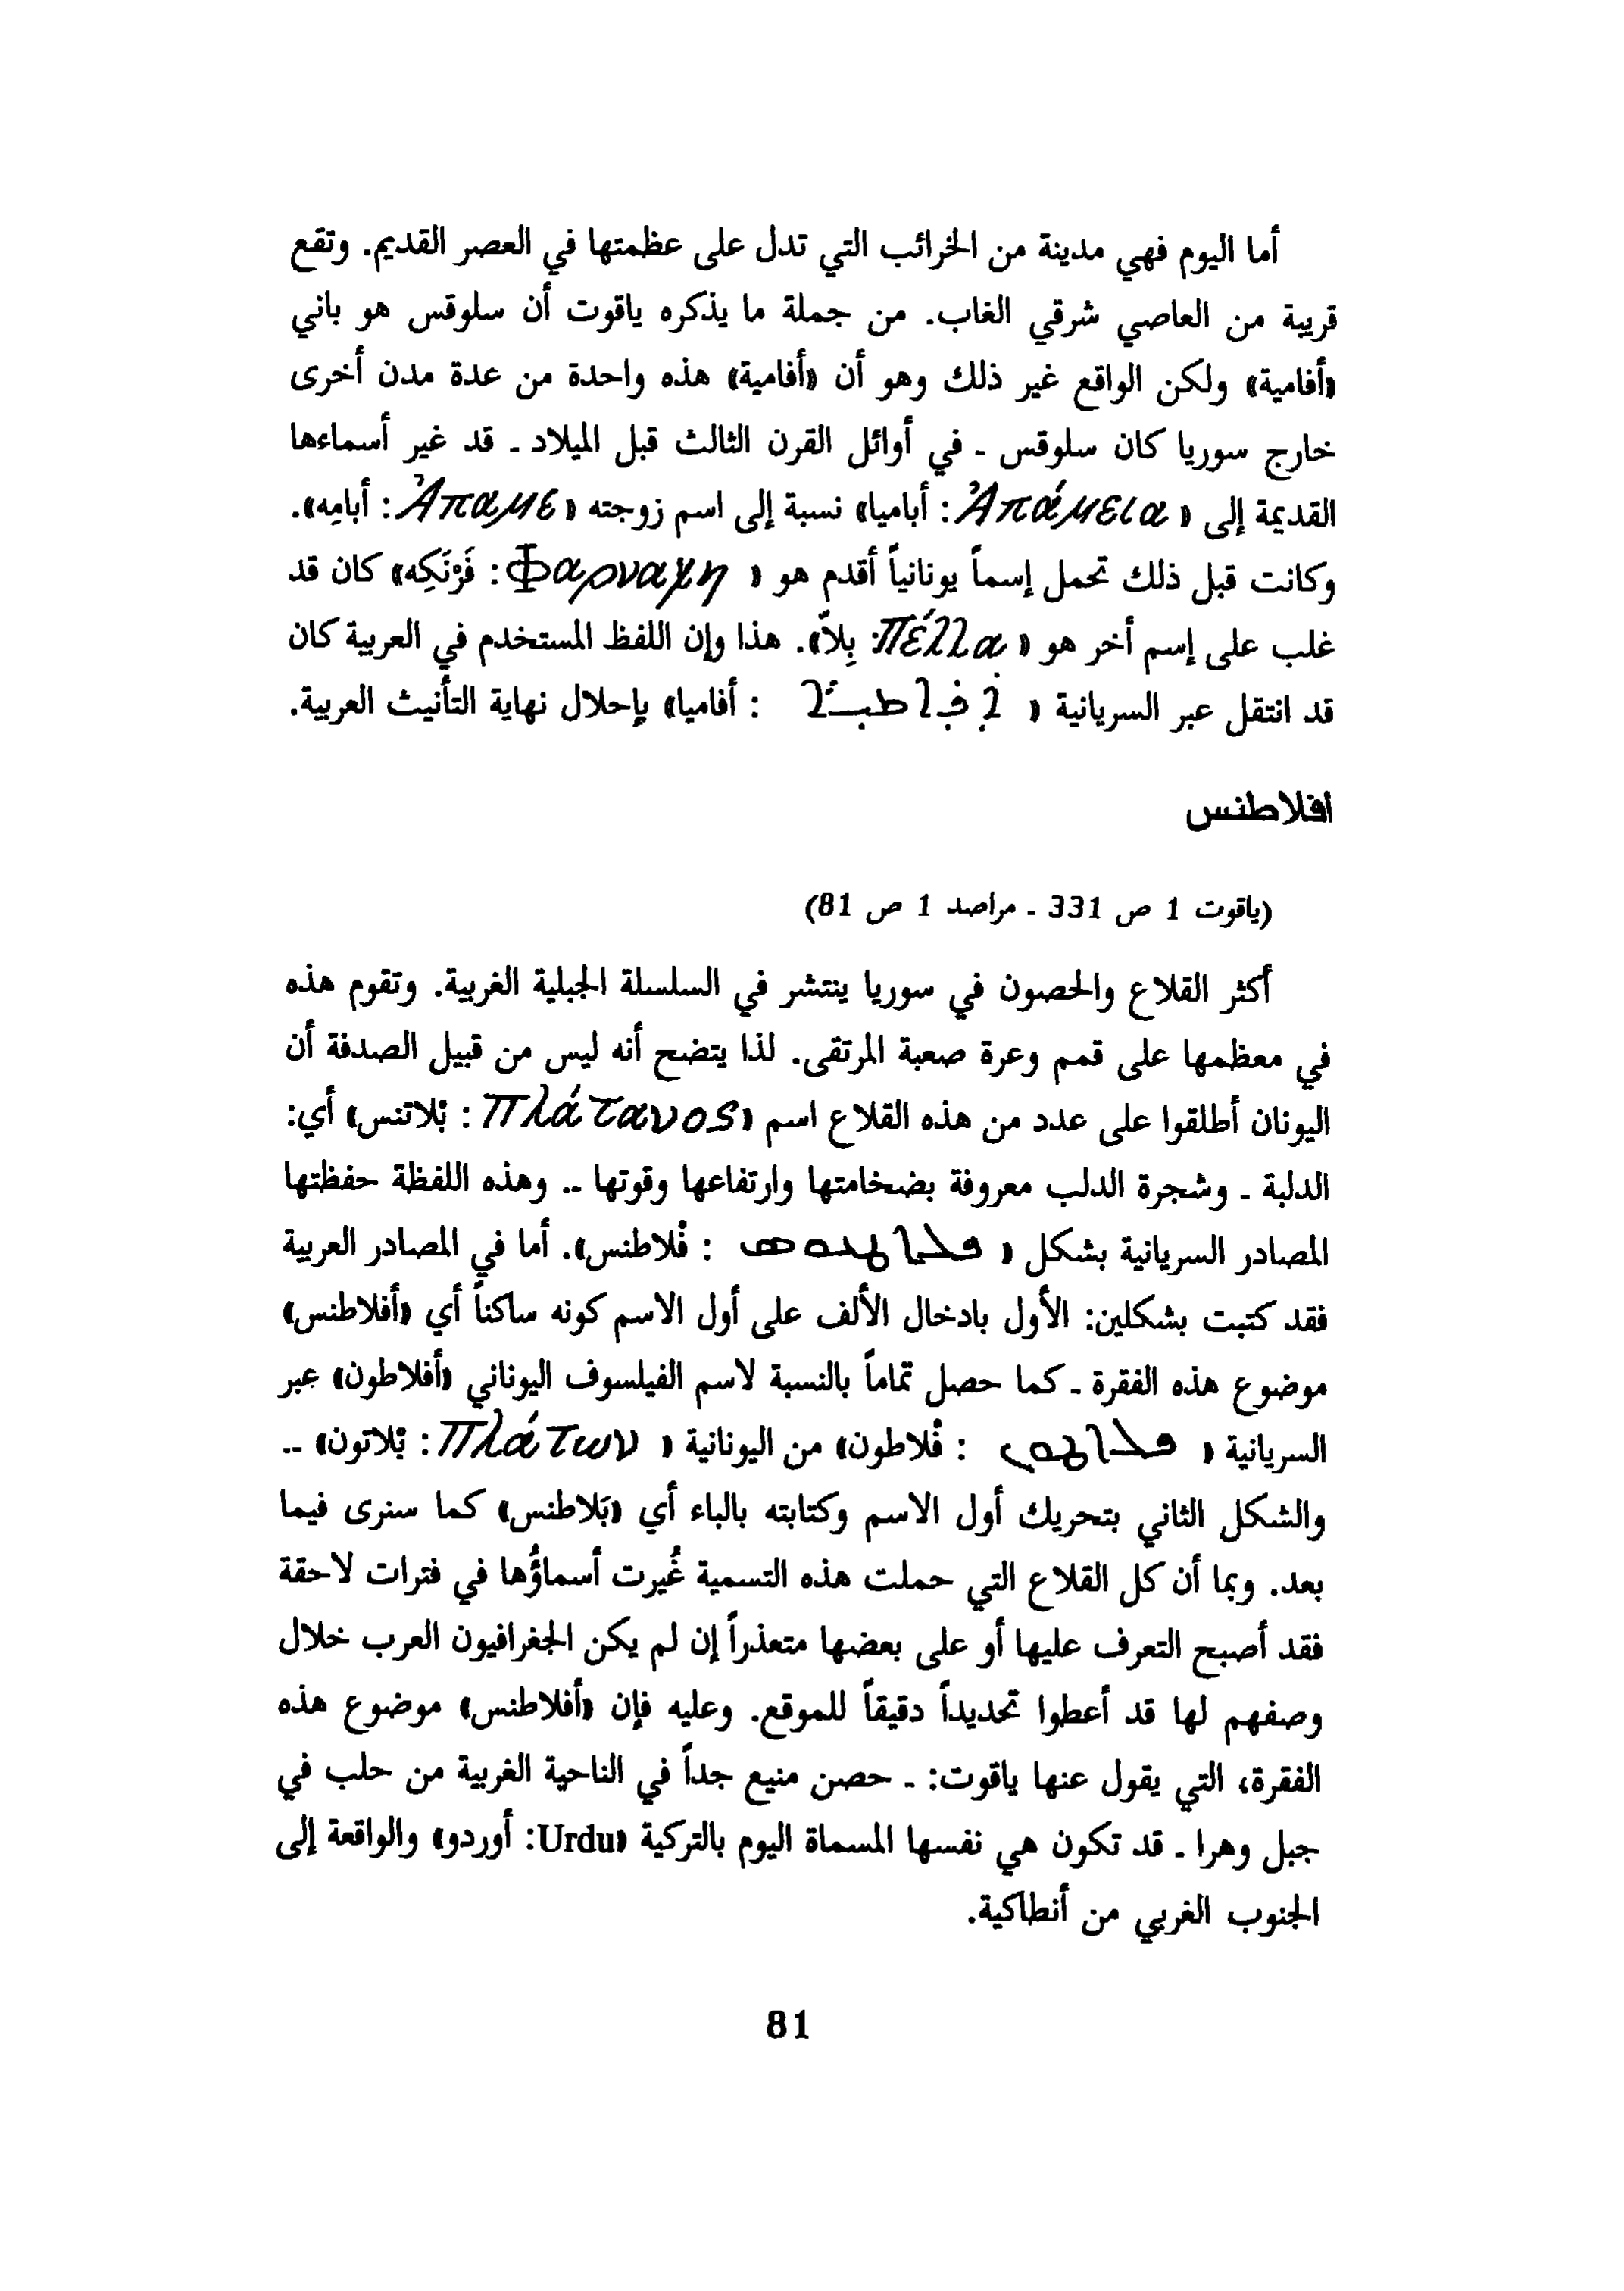 أما اليوم فهي مدينة من الخرائب التي تدل على عظمتها في العصر القديم. وتقع
قريبة من العاصي شرقي الغاب. من جملة ما يذكره ياقوت أن سلوقس هو باني
«أفامية» ولكن الواقع غير ذلك وهو أن «أفامية» هذه واحدة من عدة مدن أخرى
خارج سوريا كان سلوقس - في أوائل القرن الثالث قبل الميلاد - قد غير أسماءها
القديمة إلى «Ἀπάμεια: أباميا» نسبة إلى اسم زوجته «Ἀπαμε: أبامِه».
وكانت قبل ذلك تحمل إسماً يونانياً أقدم هو «Φαρναχη: فَرْنَكِه» كان قد
غلب على إسم أخر هو «Πέλλα: بِلاّ». هذا وإن اللفظ المستخدم في العربية كان
قد انتقل عبر السريانية « : أفاميا» بإحلال نهاية التأنيث العربية.
أفلاطنس
(ياقوت 1 ص 331 - مراصد 1 ص 81)
أكثر القلاع والحصون في سوريا ينتشر في السلسلة الجبلية الغربية. وتقوم هذه
في معظمها على قمم وعرة صعبة المرتقى. لذا يتضح أنه ليس من قبيل الصدفة أن
اليونان أطلقوا على عدد من هذه القلاع اسم «Πλάτανος: بْلاتنس» أي:
الدلبة - وشجرة الدلب معروفة بضخامتها وارتفاعها وقوتها -. وهذه اللفظة حفظتها
المصادر السريانية بشكل «ܦܠܐܛܢܘܣ : فْلاطنس». أما في المصادر العربية
فقد كتبت بشكلين: الأول بادخال الألف على أول الاسم كونه ساكناً أي «أفلاطنس»
موضوع هذه الفقرة - كما حصل تماماً بالنسبة لاسم الفيلسوف اليوناني «أفلاطون» عبر
السريانية «ܦܠܐܛܘܢ : فْلاطون» من اليونانية «Πλάτων: بْلاتون» -.
والشكل الثاني بتحريك أول الاسم وكتابته بالباء أي «بَلاطنس» كما سنرى فيما
بعد. وبما أن كل القلاع التي حملت هذه التسمية غُيرت أسماؤُها في فترات لاحقة
فقد أصبح التعرف عليها أو على بعضها متعذراً إن لم يكن الجغرافيون العرب خلال
وصفهم لها قد أعطوا تحديداً دقيقاً للموقع. وعليه فإن «أفلاطنس» موضوع هذه
الفقرة، التي يقول عنها ياقوت: - حصن منيع جداً في الناحية الغربية من حلب في
جبل وهرا - قد تكون هي نفسها المسماة اليوم بالتركية «Urdu: أوردو» والواقعة إلى
الجنوب الغربي من أنطاكية.
81